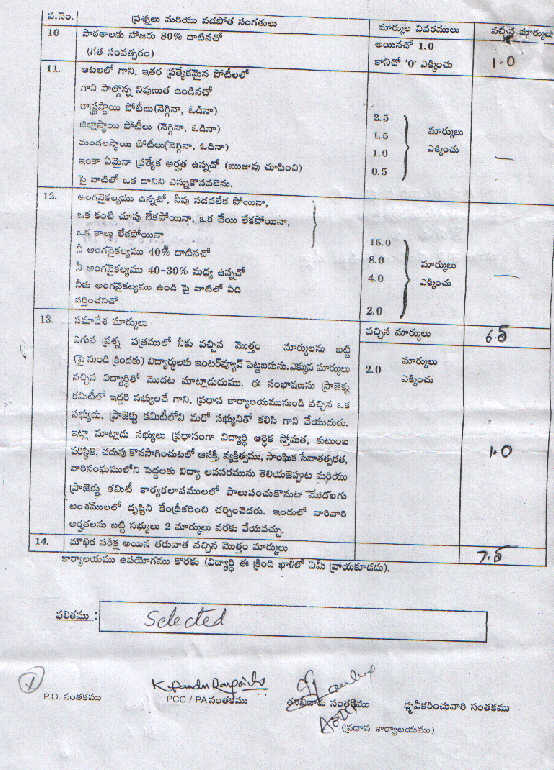 ప.సం. ప్రశ్నలు మరియు పరిశోధన సంగతులు మార్కుల వివరములు వచ్చిన మార్కులు
10 పాఠశాలకు హాజరు 80% దాటినచో అయినచో 1.0
(గత సంవత్సరం) కానిచో '0' ఎక్కించు 1.0
11. ఆటలలో గాని, ఇతర ప్రత్యేకమైన పోటీలలో
గాని పాల్గొన్న నిపుణుత ఉండినచో
రాష్ట్రస్థాయి పోటీలు(నెగ్గినా, ఓడినా) 2.5 మార్కులు
జిల్లాస్థాయి పోటీలు (నెగ్గినా, ఓడినా) 1.5 ఎక్కించు
మండలస్థాయి పోటీలు(నెగ్గినా, ఓడినా) 1.0
ఇంకా ఏమైనా ప్రత్యేక అర్హత ఉన్నచో (ఋజువు చూపించి) 0.5 —
పై వాటిలో ఒక దానిని ఎన్నుకొనవలెను.
12. అంగవైకల్యము ఉన్నచో, నీవు నడవలేక పోయినా,
ఒక కంటి చూపు లేకపోయినా, ఒక చేయి లేకపోయినా,
ఒక కాలు లేకపోయినా
నీ అంగవైకల్యము 40% దాటినచో 15.0
నీ అంగవైకల్యము 40-30% మధ్య ఉన్నచో 8.0 మార్కులు
నీకు అంగవైకల్యము ఉండి పై వాటిలో ఏది 4.0 ఎక్కించు —
వర్తించనిచో 2.0
13. సమావేశ మార్కులు వచ్చిన మార్కులు 6.5
ఎగువ ప్రశ్న పత్రములో నీకు వచ్చిన మొత్తం మార్కులను బట్టి 2.0 మార్కులు
(పై నుండి క్రిందకు) విద్యార్థులకు ఇంటర్వ్యూకి పెట్టబడును.ఎక్కువ మార్కులు ఎక్కించు
వచ్చిన విద్యార్థితో మొదట మాట్లాడుదుము. ఈ సంభాషణను ప్రాజెక్టు
కమిటీలో ఇద్దరి సభ్యులచే గాని, ప్రధాన కార్యాలయమునుండి వచ్చిన ఒక
సభ్యుడు, ప్రాజెక్టు కమిటీలోని మరో సభ్యునితో కలిసి గాని చేయుదురు.
ఇట్లా మాట్లాడు సభ్యులు ప్రధానంగా విద్యార్థి ఆర్థిక స్తోమత, కుటుంబ
పరిస్థితి, చదువు కొనసాగించుటలో ఆసక్తి, వ్యక్తిత్వము, సాంఘిక సేవాతత్పరత, 1.0
వారిసంఘములోని పెద్దలకు విద్యా అవసరమును తెలియజెప్పుట మరియు
ప్రాజెక్టు కమిటీ కార్యకలాపములలో పాలుపంచుకొనుట మొదలగు
అంశములలో దృష్టిని కేంద్రీకరించి చర్చించెదరు. ఇందులో వారివారి
అర్హతలను బట్టి సభ్యులు 2 మార్కులు వరకు వేయవచ్చు.
14. మౌఖిక పరీక్ష అయిన తరువాత వచ్చిన మొత్తం మార్కులు 7.5
కార్యాలయము ఉపయోగము కొరకు (విద్యార్థి ఈ క్రింది ఖాళీలో ఏమీ వ్రాయకూడదు).
ఫలితము : Selected
P.O. సంతకము PCC / PA సంతకము సంతకము ధృవీకరించువారి సంతకము
(ప్రధాన కార్యాలయం)